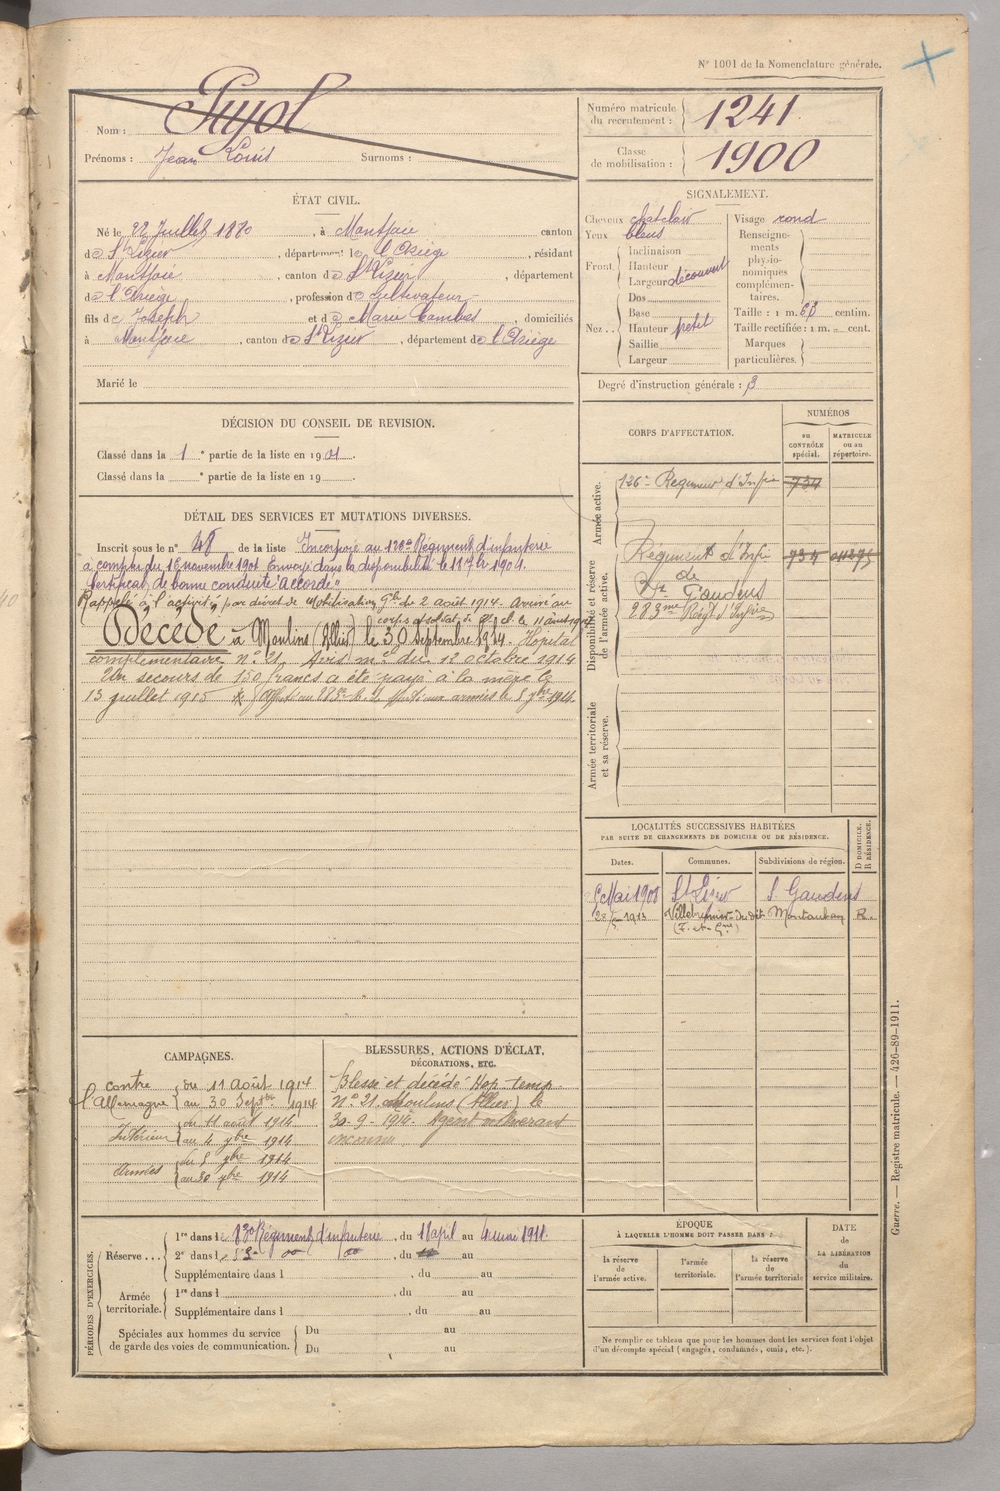 N° 1001 de la Nomenclature générale.
Nom : Pujol
Prénoms : Jean Louis Surnoms :
Numéro matricule du recrutement : 1241.
Classe de mobilisation : 1900
ÉTAT CIVIL.
Né le 22 Juillet 1880, à Montfaie canton
de St Lizier, département de l'Ariège, résidant
à Montfaie, canton de St Lizier, département
de l'Ariège, profession de Cultivateur
fils de Joseph et de Marie Combes, domiciliés
à Montfaie, canton de St Lizier, département de l'Ariège
Marié le
SIGNALEMENT.
Cheveux chat clair Visage rond
Yeux bleus Renseigne-
ments
physio-
nomiques
complémen-
taires.
Front. Inclinaison
Hauteur
Largeur découvert
Nez.. Dos
Base Taille : 1 m. 63 centim.
Hauteur petit Taille rectifiée : 1 m. cent.
Saillie Marques
Largeur particulières.
Degré d'instruction générale : 3
DÉCISION DU CONSEIL DE REVISION.
Classé dans la 1e partie de la liste en 1901.
Classé dans la e partie de la liste en 19
DÉTAIL DES SERVICES ET MUTATIONS DIVERSES.
Inscrit sous le n° 48 de la liste Incorporé au 126e Régiment d'infanterie
à compter du 16 novembre 1901 Envoyé dans la disponibilité le 1904.
Certificat de bonne conduite "Accordé"
Rappelé à l'activité par décret de Mobilisation Gle du 2 août 1914. Arrivé au
corps et soldat de 2e cl. le 11 août 1914
Décédé à Moulins (Allier) le 30 Septembre 1914. Hôpital
complémentaire n° 21 Avis mel du 12 octobre 1914
Un secours de 150 francs a été payé à la mère le
13 juillet 1915 Affecté au 283e R.I. parti aux armées le 5 7bre 1914.
CORPS D'AFFECTATION.
NUMÉROS
au CONTRÔLE spécial.
MATRICULE ou au répertoire.
Armée active.
126e Régiment d'Infie 734
Disponibilité et réserve de l'armée active.
Régiment d'Infie 734
de
St Gaudens
283me Régt d'Infie
Armée territoriale et sa réserve.
LOCALITÉS SUCCESSIVES HABITÉES
PAR SUITE DE CHANGEMENTS DE DOMICILE OU DE RÉSIDENCE.
Dates. Communes. Subdivisions de région. D DOMICILE. R RÉSIDENCE.
5 Mai 1908 St Lizier St Gaudens
28 1913 Montauban R.
(T.-et-Gne)
CAMPAGNES.
contre l'Allemagne du 11 août 1914
au 30 Septbre 1914
Intérieur du 11 août 1914
au 4 7bre 1914
Armées du 5 7bre 1914
au 30 7bre 1914
BLESSURES, ACTIONS D'ÉCLAT,
DÉCORATIONS, ETC.
Blessé et décédé Hop. temp.
N° 21 Moulins (Allier) le
30-9-1914. Agent vulnérant
inconnu
PÉRIODES D'EXERCICES.
Réserve... 1re dans le 83e Régiment d'infanterie, du 11 April au 4 mai 1911.
2e dans le , du au
Supplémentaire dans l , du au
Armée territoriale. 1re dans l , du au
Supplémentaire dans l , du au
Spéciales aux hommes du service
de garde des voies de communication. Du au
Du au
ÉPOQUE
À LAQUELLE L'HOMME DOIT PASSER DANS :
la réserve de l'armée active.
l'armée territoriale.
la réserve de l'armée territoriale
DATE
de
LA LIBÉRATION
du
service militaire.
Ne remplir ce tableau que pour les hommes dont les services font l'objet
d'un décompte spécial (engagés, condamnés, omis, etc.).
Guerre. — Registre matricule. — 426-89-1911.